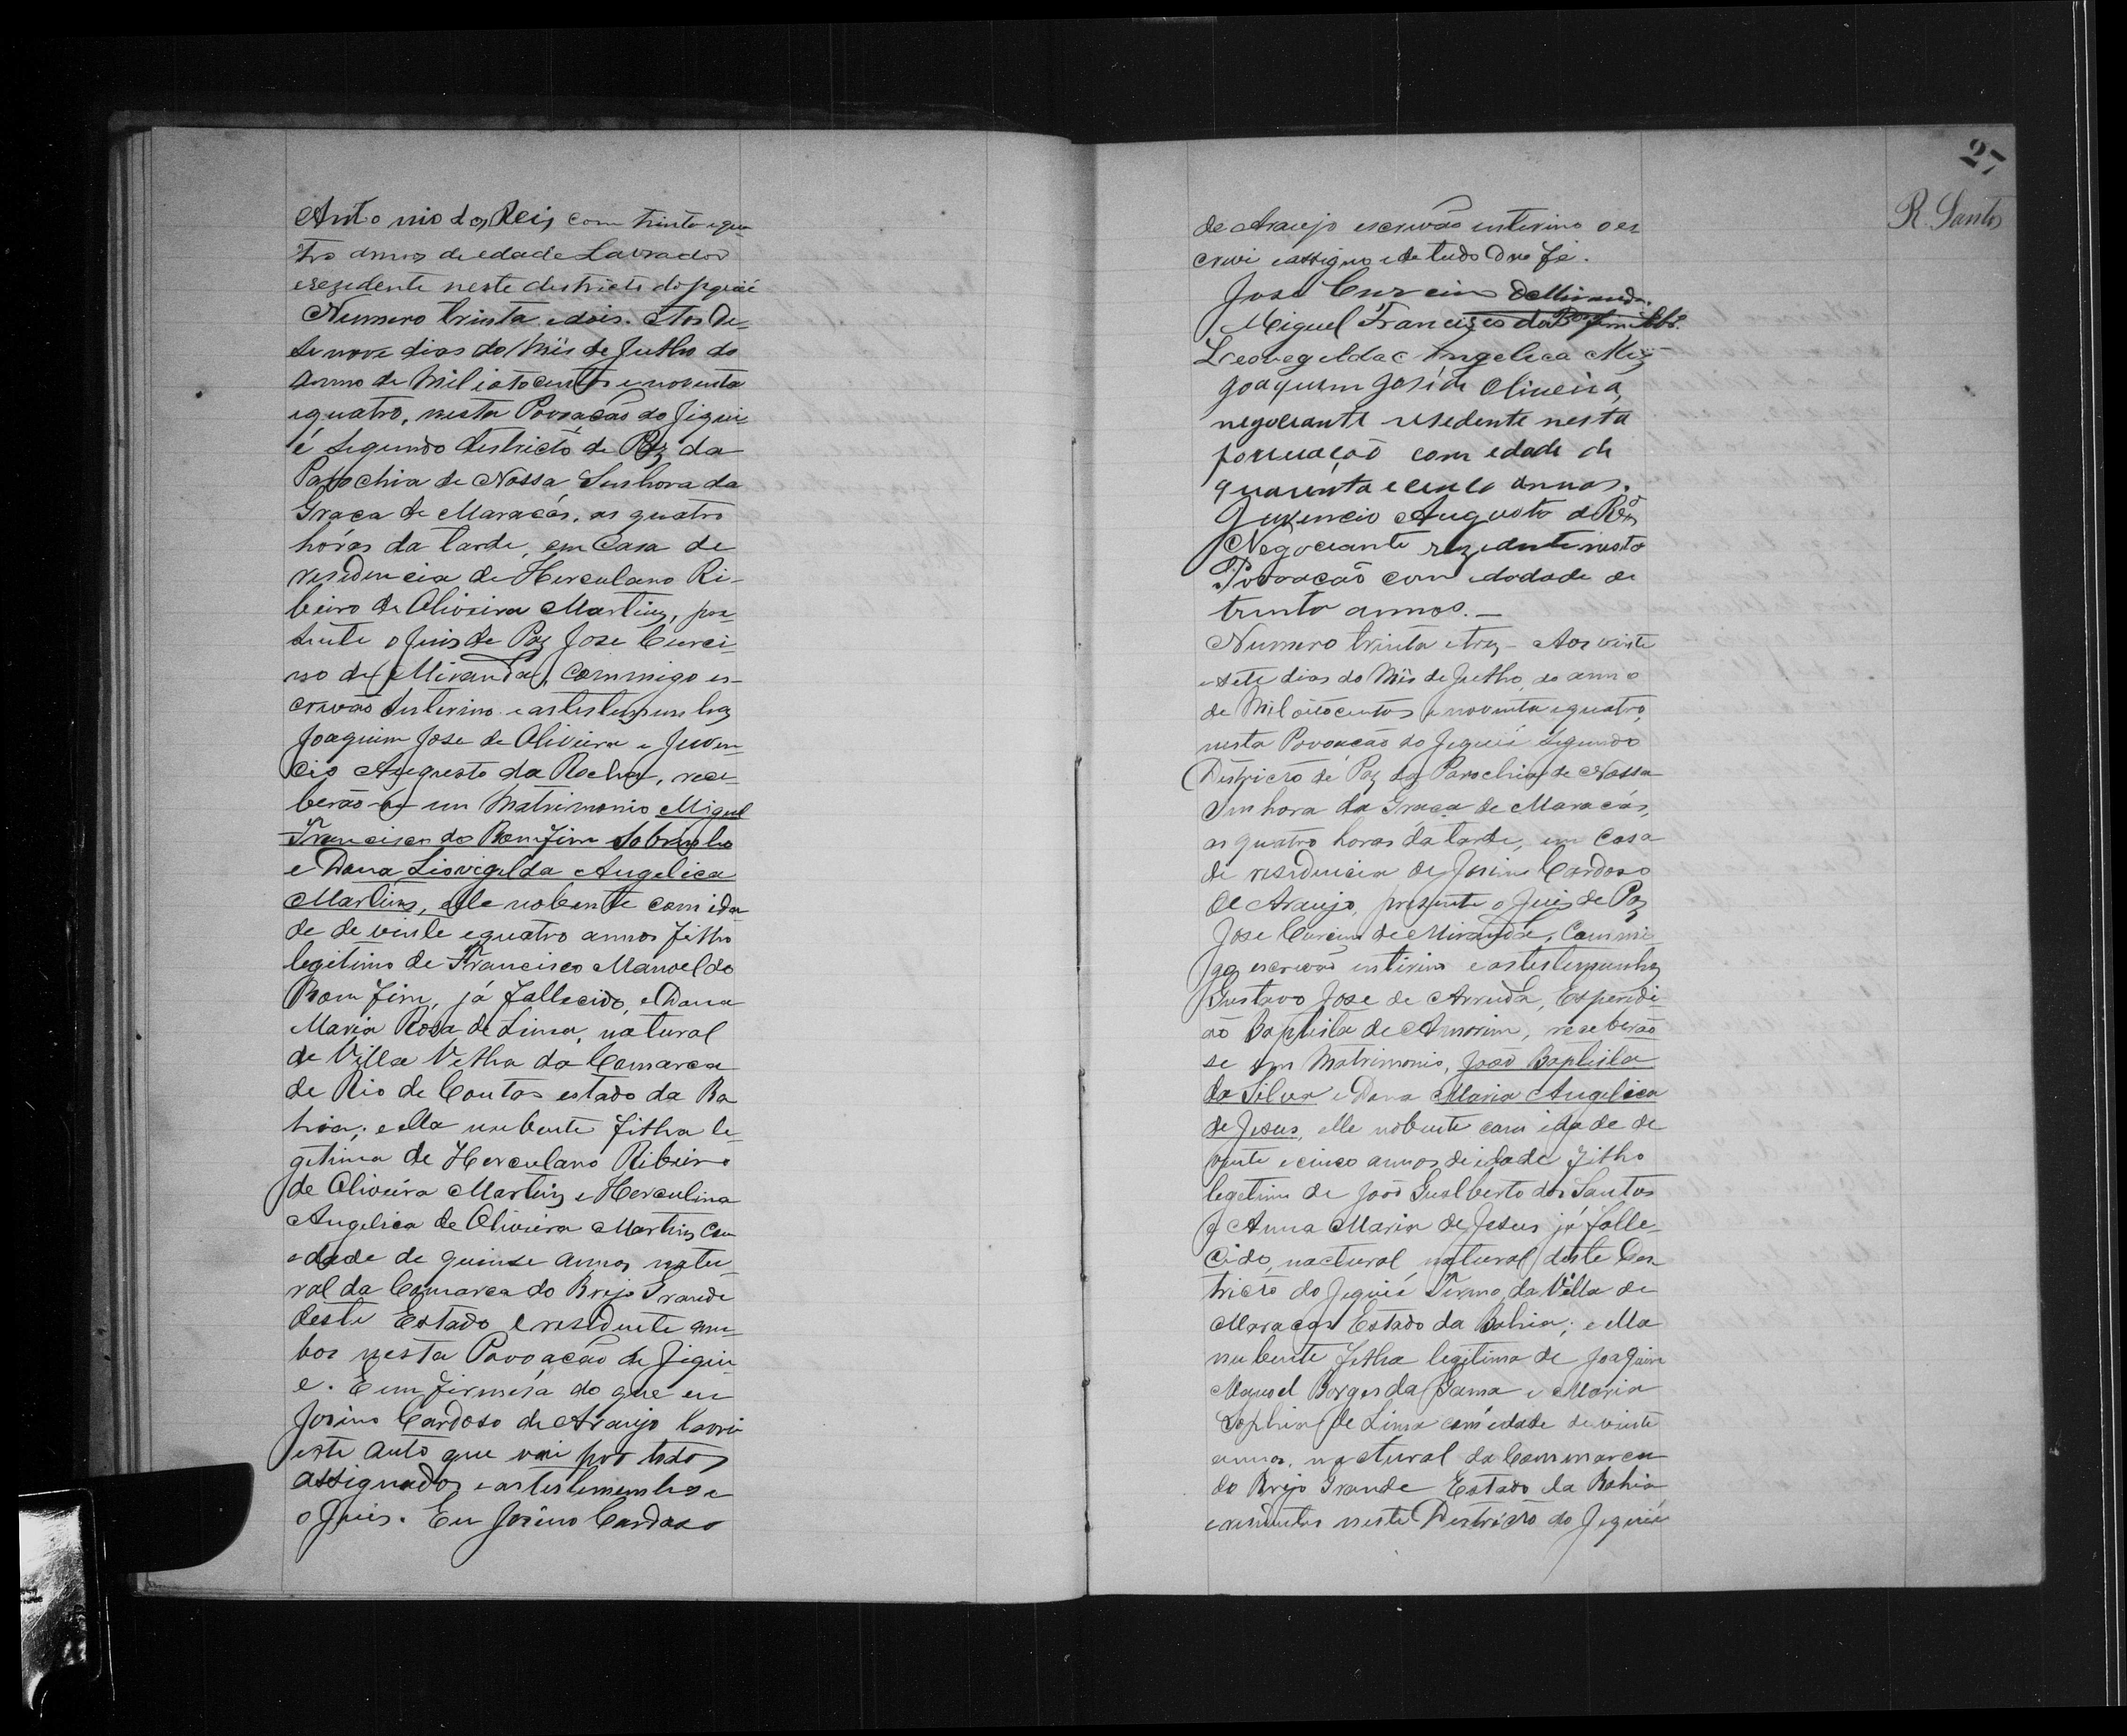 Antonio dos Reis com trinta equa-
tro annos de edade Lavrador
eresedente neste destricto do Jiquié
Numero trinta e dois. Aos De-
senove dias do Mês de Julho do
Anno de Mil oitocentos e noventa
equatro, nesta Povoação do Jiqui-
é Segundo destricto de Paz da
Parochia de Nossa Senhora da
Graça de Maracás, as quatro
horas da tarde, em Casa de
residencia de Herculano Ri-
beiro de Oliveira Martins, pre-
sente o Juis de Paz Jose Curci-
no de Miranda, Commigo es-
crivão Interino e astestemunhas
Joaquim Jose de Oliveira e Juven-
cio Augusto da Rocha, rece-
berão-se em Matrimonio Miguel
Francisco do Bomfim Sobrinho
e Dona Liovigelda Angelica
Martins, elle nobente com ida-
de de vinte equatro annos filho
legitimo de Francisco Manoel do
Bom fim, já fallecido, e Dona
Maria Rosa de Lima, natural
de Villa Velha da Comarca
de Rio de Contas estado da Ba
hia; e ella nubente filha le-
getima de Herculano Ribeiro
de Oliveira Martins e Herculina
Angelica de Oliveira Martins Com
edade de quinse annos natu-
ral da Comarca do Brejo Grande
deste Estado e residente am-
bos nesta Povoação de Jiqui-
e. E em firmesa do que eu
Josino Cardoso de Araujo lavrei
este auto que vai por todos
assignados e astestemunhas e
o Juis. Eu Josino Cardoso
27
R. Santos
de Araujo escrivão interino o es
crivi eassigno e de tudo dou fé.
Jose Curcino de Miranda.
Miguel Francisco do Bomfim Sobº.
Leovegelda Angelica Miz
Joaquim José de Oliveira,
negociante resedente nesta
povuação com edade de
quarenta e cinco annos.
Juvencio Augusto da Rocha
Negociante rezedente nesta
Povoação com edadade de
trinta annos.—
Numero trinta e trez - Aos vinte
e sete dias do Mês de Julho do anno
de Mil oitocentos e noventa equatro,
nesta Povoação do Jequié Segundo
Districto de Paz da Parochia de Nossa
Senhora da Graça de Maracás,
as quatro horas da tarde, em Casa
de residencia de Josino Cardoso
de Araujo, presente o Juis de Paz
Jose Curcino de Miranda, Commi-
go escrivão interino e astestemunhas
Gustavo Jose de Arruda, Esperidi-
ão Baptista de Amorim, receberão
se em Matrimonio, João Baptista
da Silva e Dona Maria Angelica
de Jesus, elle nobente com idade de
vinte ecinco annos de idade filho
legetimo de João Gualberto dos Santos
e Anna Maria de Jesus já falle-
cido, nactural natural deste Des
tricto do Jequié Termo da Villa de
Maracas Estado da Bahia; e ella
nubente filha legitima de Joaquim
Manoel Borges da Gama e Maria
Sophia de Lima com edade de vinte
annos, nactural da Commarca
do Brejo Grande Estado da Bahia
eresidentes neste Destricto do Jequié